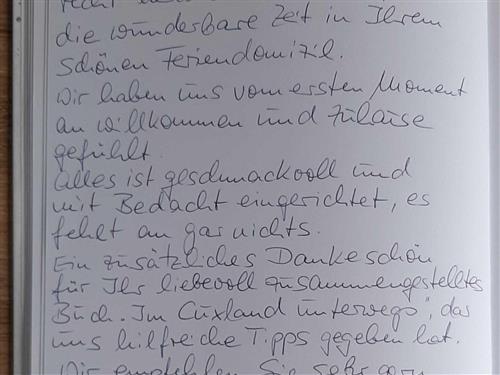 die wunderbare Zeit in Ihrem
schönen Feriendomizil.
Wir haben uns vom ersten Moment
an willkommen und zuhause
gefühlt.
Alles ist geschmackvoll und
mit Bedacht eingerichtet, es
fehlt an gar nichts.
Ein zusätzliches Dankeschön
für Ihr liebevoll zusammengestelltes
Buch "Im Cuxland unterwegs", das
uns hilfreiche Tipps gegeben hat.
Wir empfehlen Sie sehr gern